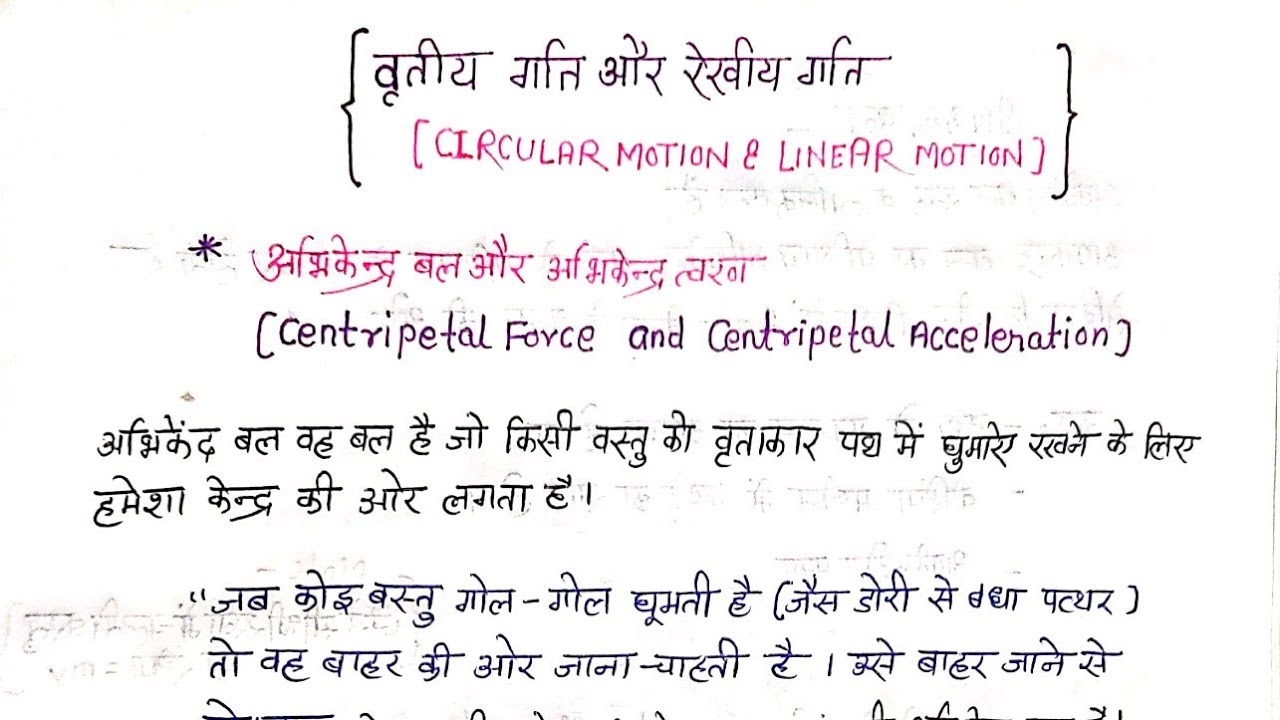 वृतीय गति और रेखीय गति
[CIRCULAR MOTION & LINEAR MOTION]
* अभिकेन्द्र बल और अभिकेन्द्र त्वरण
[Centripetal Force and Centripetal Acceleration]
अभिकेंद्र बल वह बल है जो किसी वस्तु को वृताकार पथ में घुमाऐ रखने के लिए
हमेशा केन्द्र की ओर लगता है।
"जब कोइ बस्तु गोल-गोल घूमती है (जैस डोरी से बधा पत्थर)
तो वह बाहर की ओर जाना चाहती है । उसे बाहर जाने से